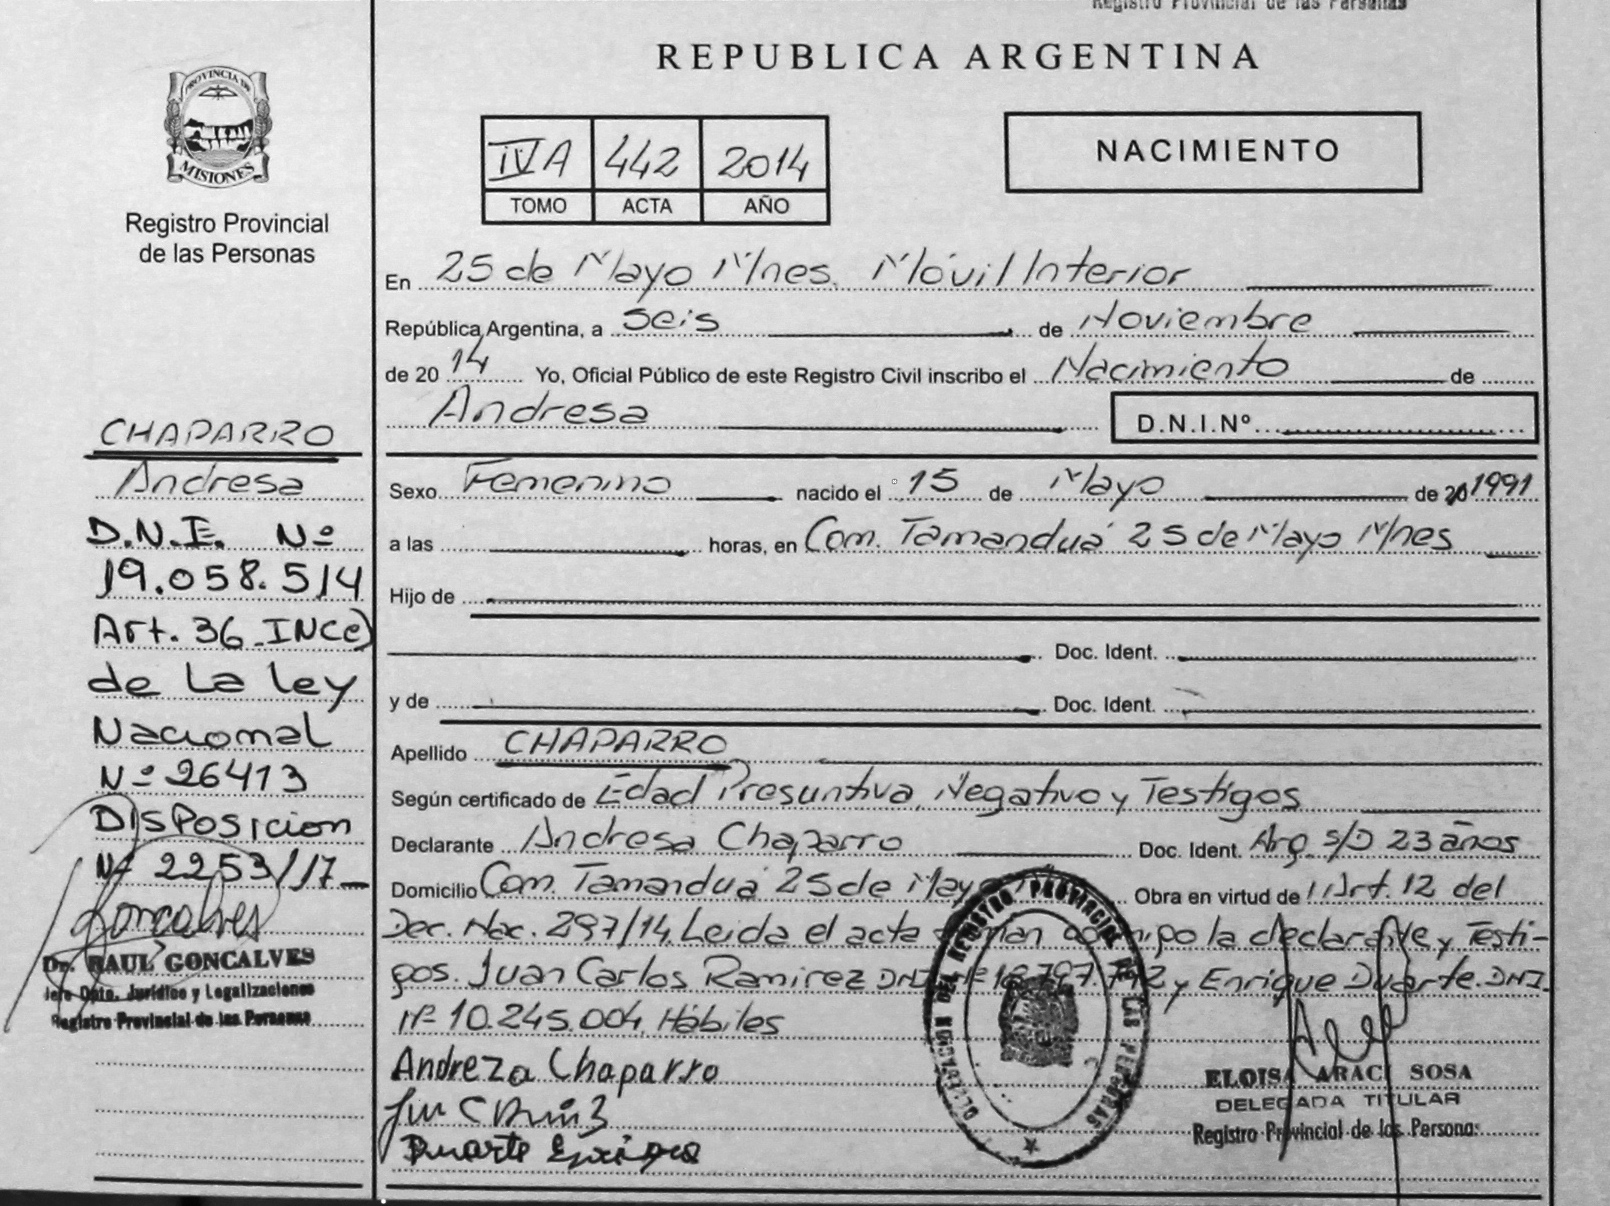 Registro Provincial de las Personas
REPUBLICA ARGENTINA
PROVINCIA DE
MISIONES
Registro Provincial
de las Personas
IV A 442 2014
TOMO ACTA AÑO
NACIMIENTO
En 25 de Mayo Mnes. Móvil Interior
República Argentina, a Seis de Noviembre
de 20 14 Yo, Oficial Público de este Registro Civil inscribo el Nacimiento de
Andresa
D.N.I.Nº
Sexo Femenino nacido el 15 de Mayo de 20 1991
a las horas, en Com. Tamanduá 25 de Mayo Mnes
Hijo de
Doc. Ident.
y de Doc. Ident.
Apellido CHAPARRO
Según certificado de Edad Presuntiva, Negativo y Testigos
Declarante Andresa Chaparro Doc. Ident. Arg. s/D 23 años
Domicilio Com. Tamanduá 25 de Mayo Obra en virtud de Art. 12 del
Dec. Nac. 297/14. Leida el acta la declarante y Testi-
gos. Juan Carlos Ramirez DNI y Enrique Duarte. DNI.
Nº 10.245.004 Hábiles
Andreza Chaparro
Duarte Enrique
DELEGACION DEL REGISTRO PROVINCIAL DE LAS PERSONAS
ELOISA ARACI SOSA
DELEGADA TITULAR
Registro Provincial de las Personas
CHAPARRO
Andresa
D.N.I. Nº
19.058.514
Art. 36 INCe)
de La ley
Nacional
Nº 26413
DISPosicion
Nº 2253/17
Goncalves
Dr. RAUL GONCALVES
Jefe Dpto. Jurídico y Legalizaciones
Registro Provincial de las Personas